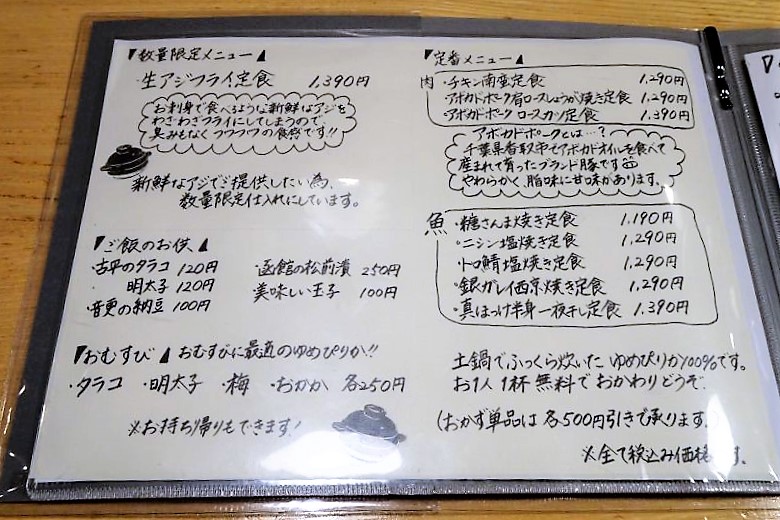 ▼数量限定メニュー▲
・生アジフライ定食 1,390円
お刺身で食べるような新鮮なアジを
わざわざフライにしてしまうので、
臭みもなくフワフワの食感です!!
新鮮なアジでご提供したい為、
数量限定仕入れにしています。
▼ご飯のお供▲
・古平のタラコ 120円
明太子 120円
・音更の納豆 100円
・函館の松前漬 250円
美味しい玉子 100円
▼おむすび▲ おむすびに最適のゆめぴりか!!
・タラコ ・明太子 ・梅 ・おかか 各250円
※お持ち帰りもできます!
▼定番メニュー▲
肉
・チキン南蛮定食 1,290円
・アボカドポーク肩ロースしょうが焼き定食 1,290円
・アボカドポーク ロースカツ定食 1,390円
アボカドポークとは…?
千葉県香取市でアボカドオイルを食べて
産まれて育ったブランド豚です
やわらかく、脂味に甘味があります。
魚
・糠さんま焼き定食 1,190円
・ニシン塩焼き定食 1,290円
・トロ鯖塩焼き定食 1,290円
・銀ガレイ西京焼き定食 1,290円
・真ほっけ半身一夜干し定食 1,390円
土鍋でふっくら炊いた ゆめぴりか100%です。
お1人1杯 無料でおかわりどうぞ。
(おかず単品は 各500円引きで承ります。)
※全て税込み価格です。